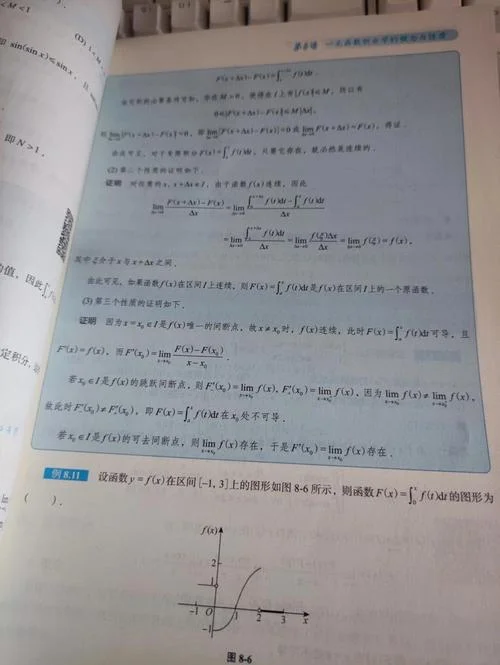 (D) 1 < M
< M < 1
即 sin(sin x) ≤ sin x, 且
即 N > 1.
的值, 因此
定积分,
第8讲 一元函数积分学的概念与性质
F(x+Δx)-F(x)=∫ₓˣ⁺Δˣ f(t)dt.
由可积的必要条件可知, 存在M>0, 使得在I上有|f(x)|≤M, 所以有
0≤|F(x+Δx)-F(x)|≤M|Δx|,
则 lim_{Δx→0}|F(x+Δx)-F(x)|=0, 即 lim_{Δx→0}[F(x+Δx)-F(x)]=0或 lim_{Δx→0}F(x+Δx)=F(x), 得证.
由此可见, 对于变限积分F(x)=∫ₐˣ f(t)dt, 只要它存在, 就必然是连续的.
(2) 第二个性质的证明如下.
证明 对任意的x, x+Δx∈I, 由于函数f(x)连续, 因此
lim_{Δx→0} [F(x+Δx)-F(x)]/Δx = lim_{Δx→0} [∫ₐˣ⁺Δˣ f(t)dt-∫ₐˣ f(t)dt]/Δx
= lim_{Δx→0} [∫ₓˣ⁺Δˣ f(t)dt]/Δx = lim_{Δx→0} f(ξ)Δx/Δx = lim_{Δx→0} f(ξ)=f(x),
其中ξ介于x与x+Δx之间.
由此可见, 如果函数f(x)在区间I上连续, 则F(x)=∫ₐˣ f(t)dt是f(x)在区间I上的一个原函数.
(3) 第三个性质的证明如下.
证明 因为x=x₀∈I是f(x)唯一的间断点, 故x≠x₀时, f(x)连续, 此时F(x)=∫ₐˣ f(t)dt可导, 且
F'(x)=f(x), 而F'(x₀)=lim_{x→x₀} [F(x)-F(x₀)]/(x-x₀).
若x₀∈I是f(x)的跳跃间断点, 则F'₋(x₀)=lim_{x→x₀⁻} f(x), F'₊(x₀)=lim_{x→x₀⁺} f(x), 因为 lim_{x→x₀⁻} f(x)≠lim_{x→x₀⁺} f(x),
故此时F'₋(x₀)≠F'₊(x₀), 即F(x)=∫ₐˣ f(t)dt在x₀处不可导.
若x₀∈I是f(x)的可去间断点, 则 lim_{x→x₀} f(x)存在, 于是F'(x₀)=lim_{x→x₀} f(x)存在.
例 8.11 设函数y=f(x)在区间[-1, 3]上的图形如图8-6所示, 则函数F(x)=∫₀ˣ f(t)dt的图形为
( ).
f(x)
2
1
-1 O 1 2 3 x
-1
图 8-6